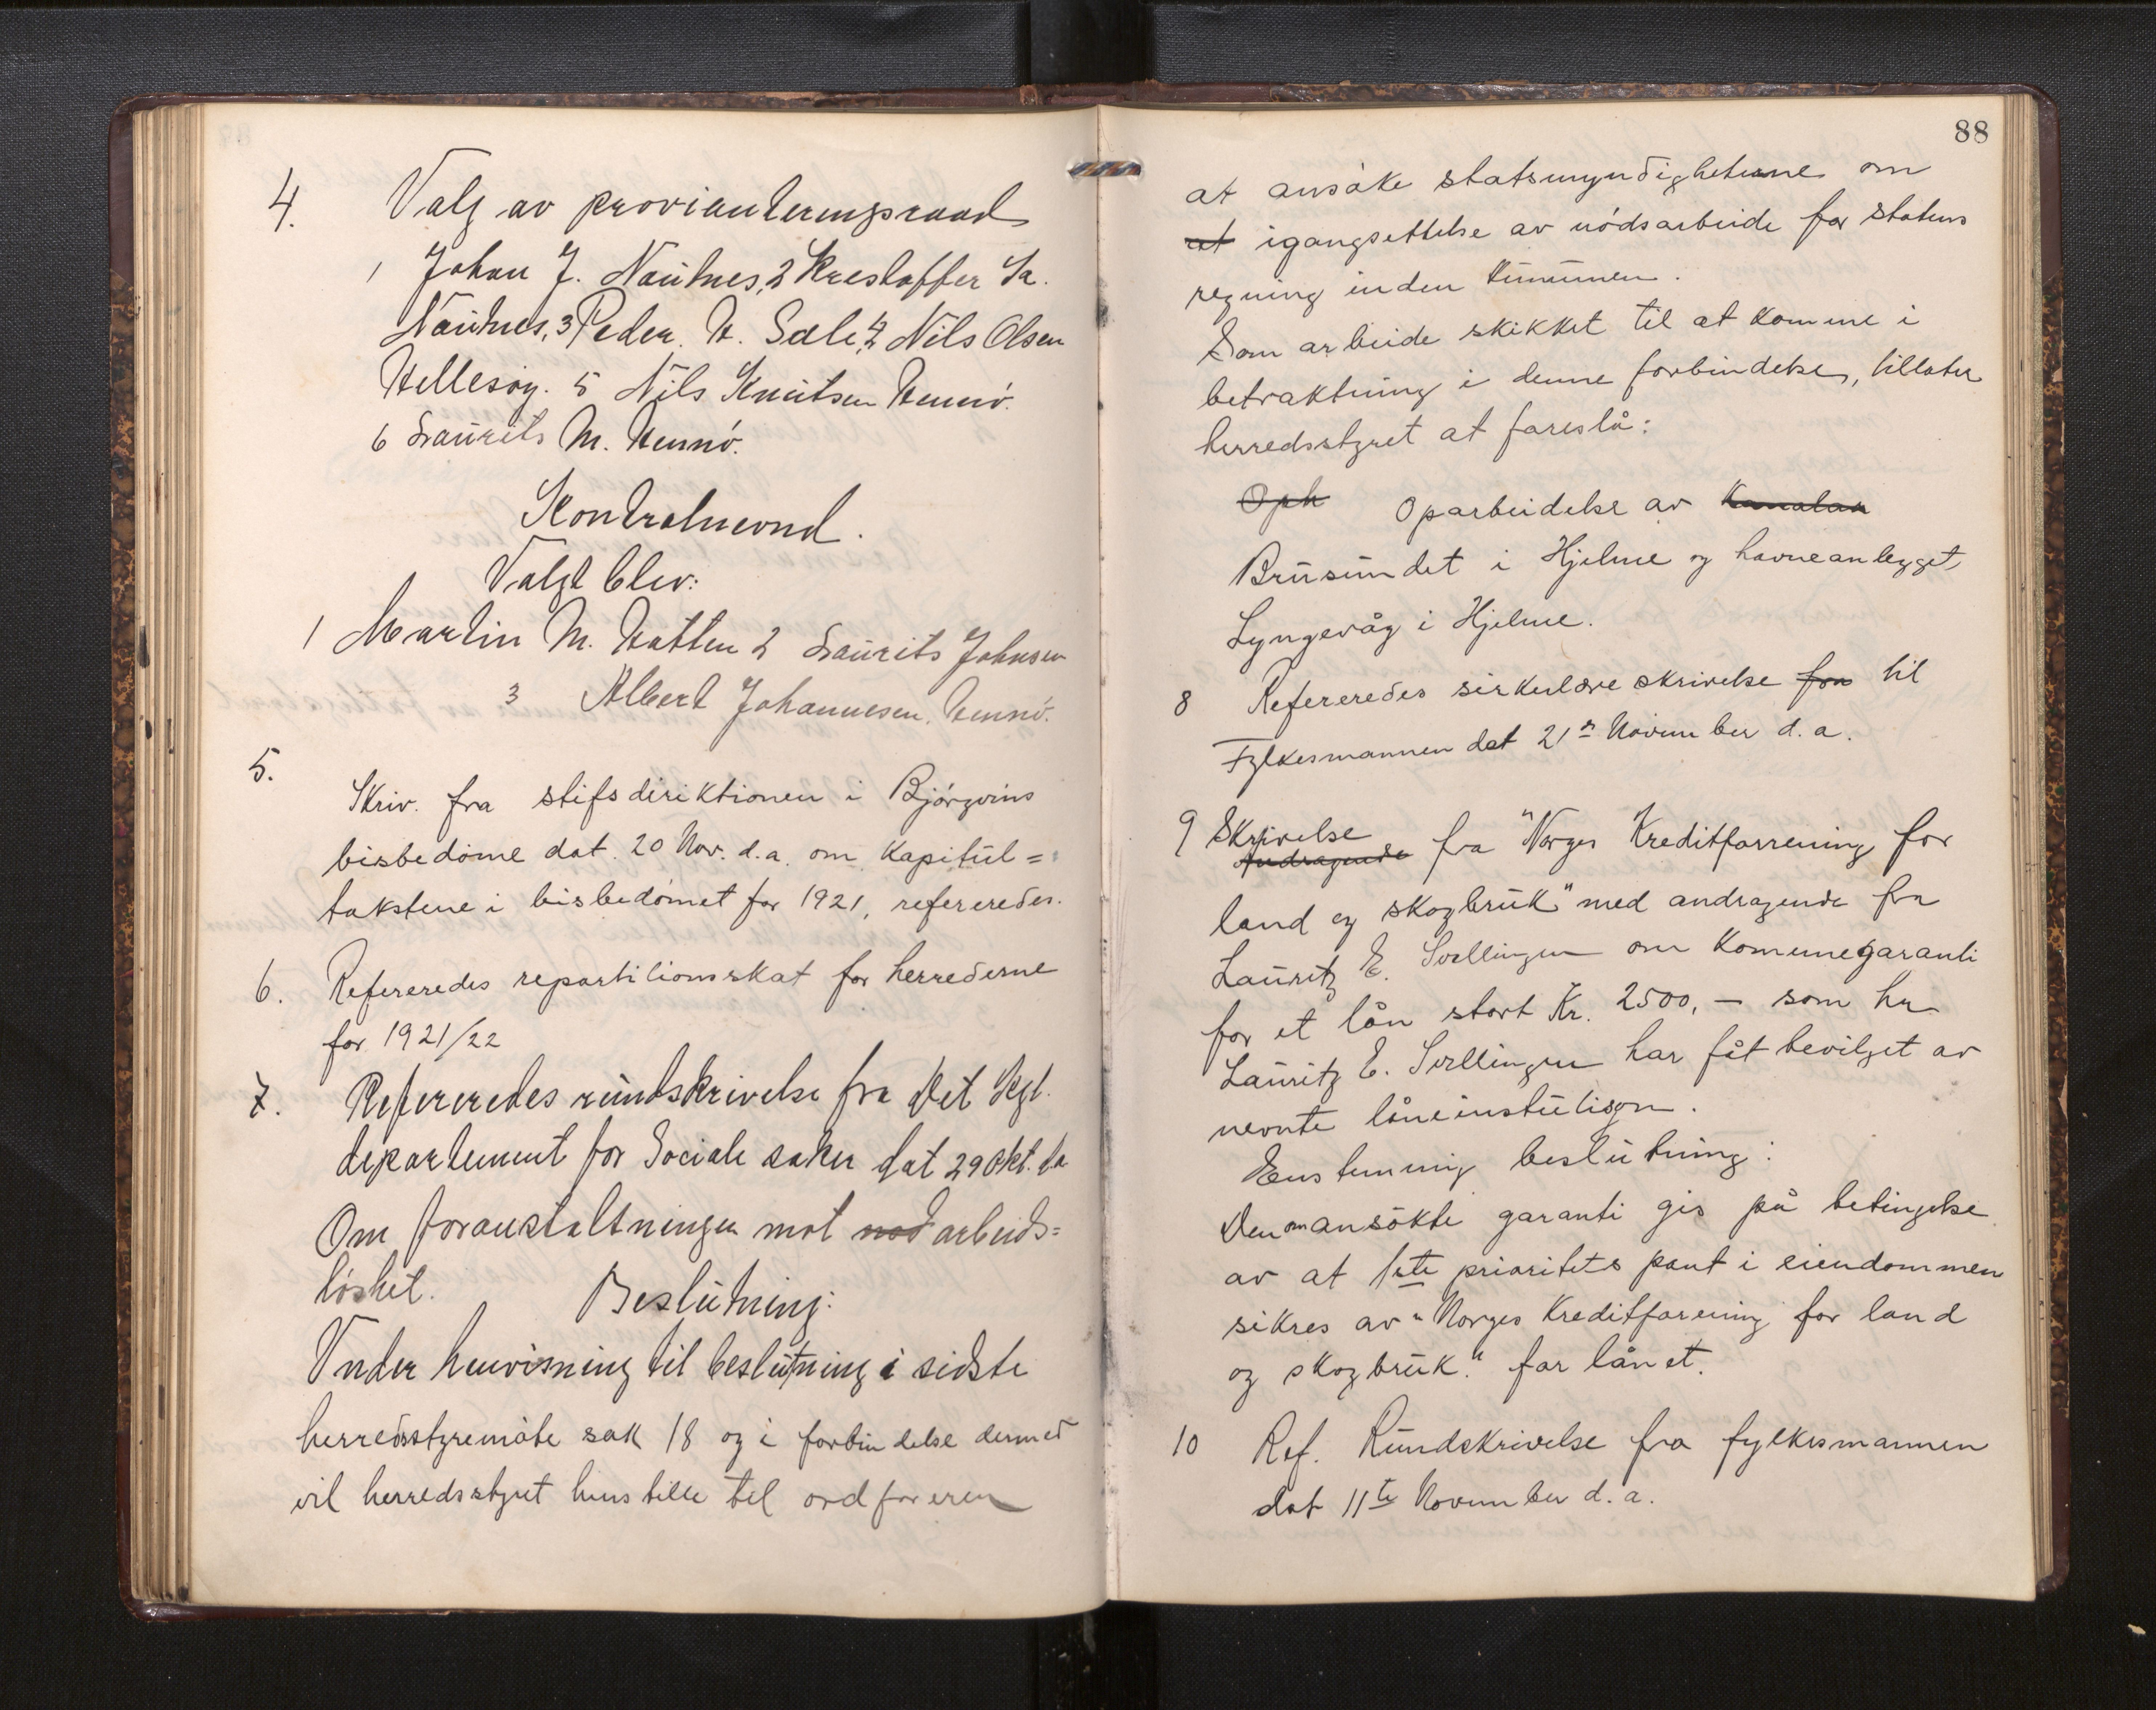 4. Valg av provianteringsraad
1 Johan J. Nautnes, 2 Krestoffer Ja.
Nautnes, 3 Peder. H. Sæle, 4 Nils Olsen
Hellesøy. 5 Nils Knutsen Hennö.
6 Laurits M. Hennö.
Kontrolnevnd.
Valgt blev:
1 Martin M. Hatten 2 Laurits Johnsen
3 Albert Johannesen. Hennö.
5.
Skriv. fra stifsdiriktionen i Bjørgvins
bisbedöme dat. 20 Nov. d.a. om Kapitül=
takstene i bisbedömet for 1921, refereredes.
6. Refereredes repartitionsskat for herrederne
for 1921/22
7. Refereredes rundskrivelse fra Det Kgl.
departement for Sociale saker dat 29 Okt. da
Om foranstaltninger mot nöd arbeids=
löshet. Beslutning:
Under henvisning til beslutning i sidste
herredsstyremöte sak 18 og i forbindelse dermed
vil herredsstyret henstille til ordföreren
88
at ansöke statsmyndighetene om
at igangsettelse av nödsarbeide for statens
regning inden Kommunen.
Som arbeide skikket til at komme i
betraktning i denne forbindelse, tillater
herredsstyret at foreslå:
Oph Oparbeidelse av Kanalan
Brusundet i Hjelme og havneanlegget
Lyngevåg i Hjelme.
8 Refereredes sirkulære skrivelse fra til
Fylkesmannen dat 21de November d.a.
9 Skrivelse
Andragende fra "Norges Kreditforrening for
land og skogbruk" med andragende fra
Lauritz E. Svellingen om Komunegaranti
for et lån stort Kr. 2500,- som hr
Lauritz E. Svellingen har fåt bevilget av
nevnte låneinstution.
Enstemmig beslutning:
Den omansökte garanti gis på betingelse
av at 1ste prioritets pant i eiendommen
sikres av "Norges Kreditforening for land
og skogbruk." for lånet.
10 Ref. Rundskrivelse fra fylkesmannen
dat 11te November d.a.